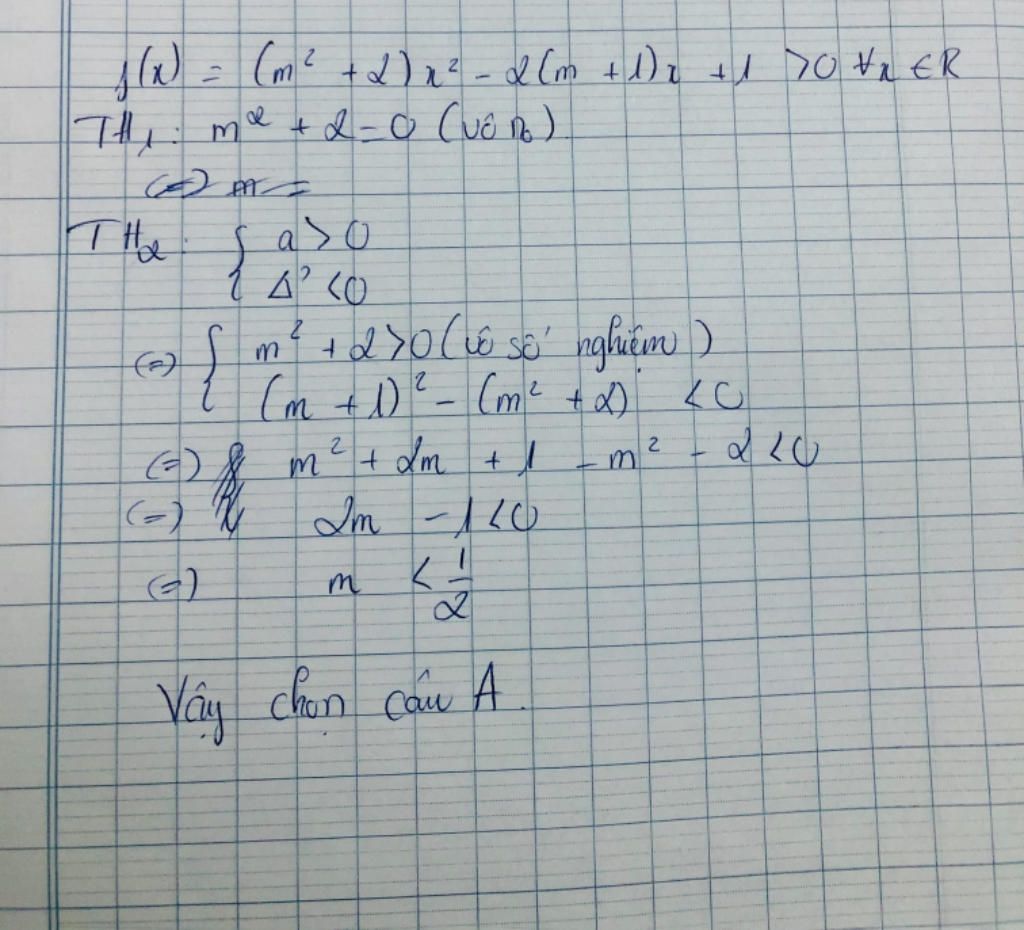 f(x) = (m² + 2)x² - 2(m + 1)x + 1 > 0 ∀x ∈ R
TH₁: m² + 2 = 0 (vô n₀)
(=) m =
TH₂: { a > 0
{ Δ' < 0
(=) { m² + 2 > 0 (vô số nghiệm)
{ (m + 1)² - (m² + 2) < 0
(=) m² + 2m + 1 - m² - 2 < 0
(=) 2m - 1 < 0
(=) m < 1/2
Vậy chọn câu A.